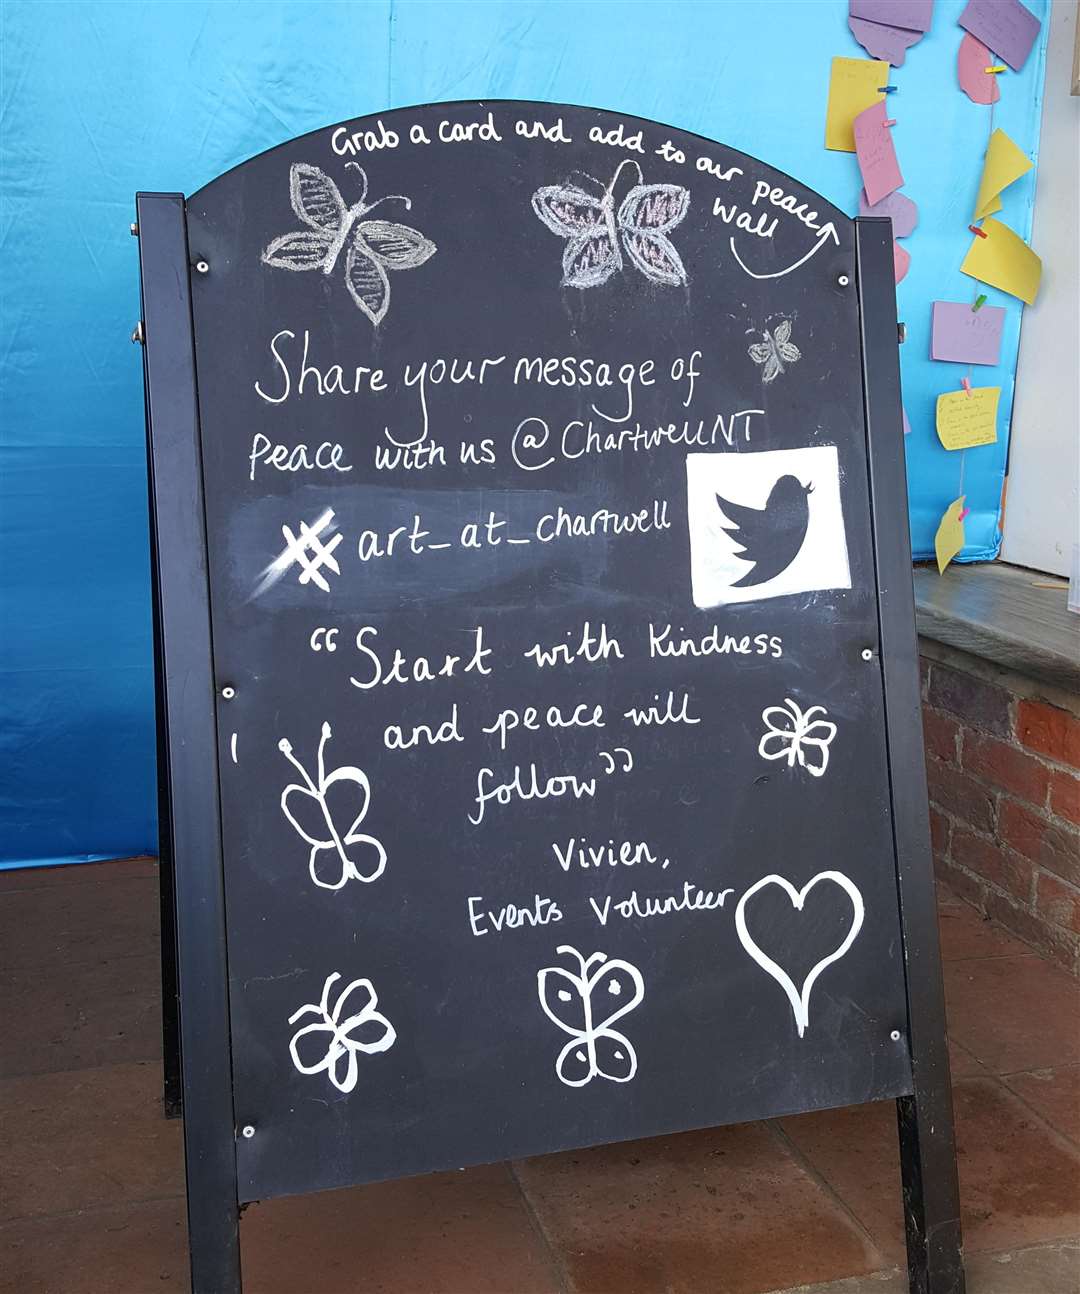 Grab a card and add to our peace
wall
Share your message of
Peace with us @ChartwellNT
#art_at_chartwell
“Start with Kindness
and peace will
follow”
Vivien,
Events Volunteer